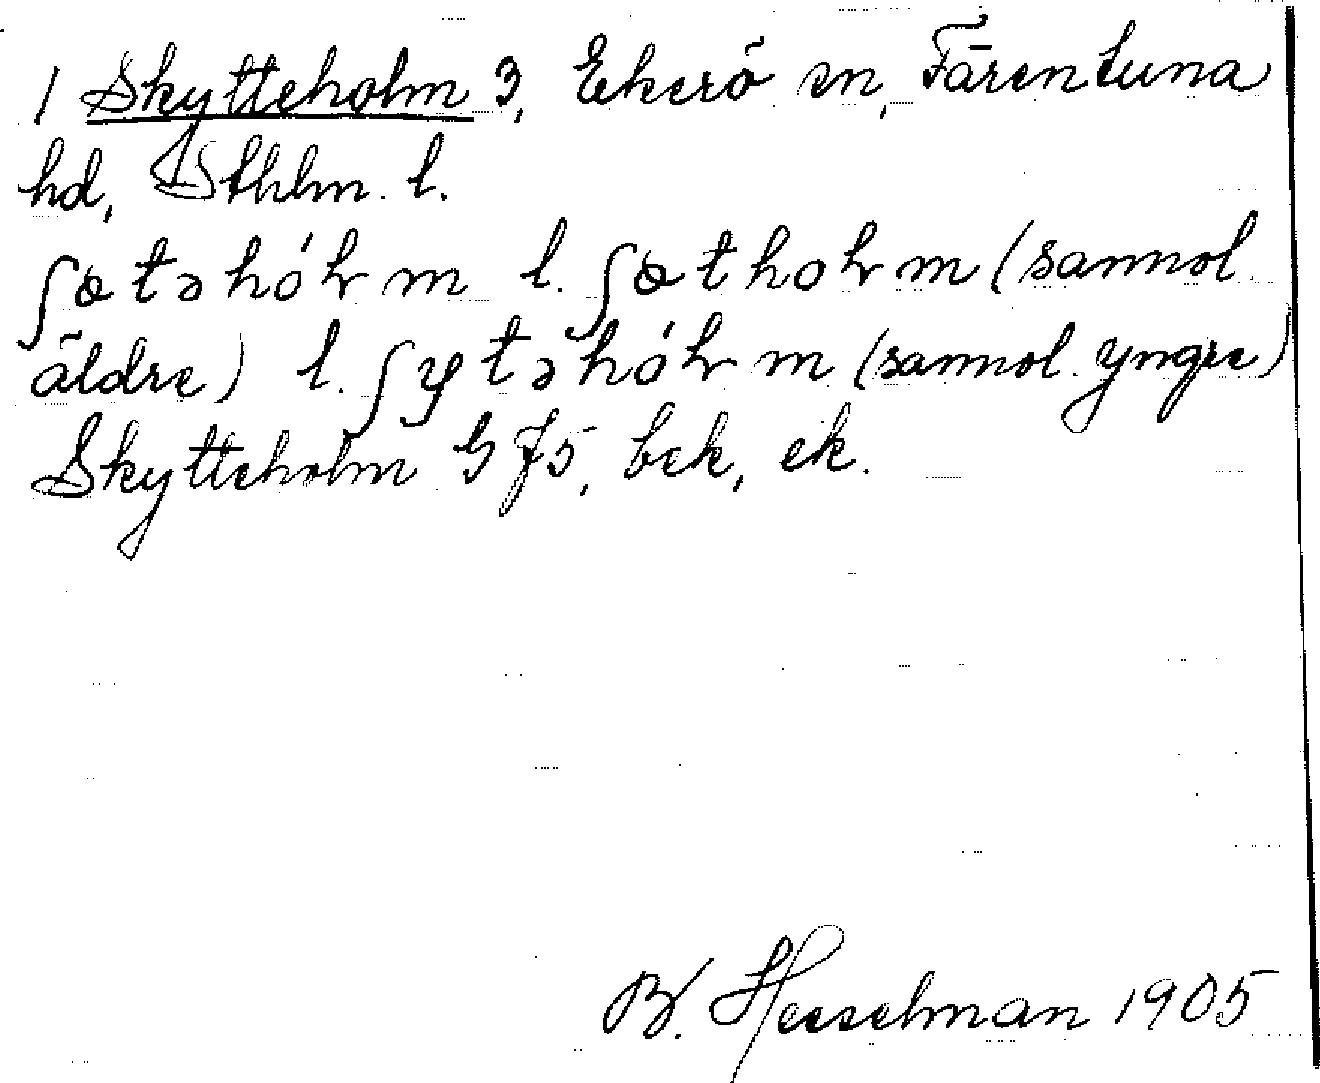 1 Skytteholm 3, Ekerö sn, Färentuna
hd, Sthlm. l.
ʃøtəhóɫm l. ʃøthoɫm (sannol.
äldre) l. ʃytəhóɫm (sannol. yngre)
Skytteholm G J5, bek, ek.
B. Hesselman 1905